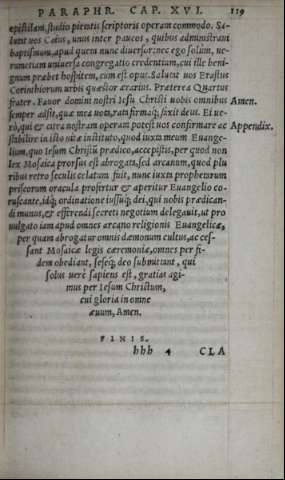 PARAPHR. CAP. XVI. 119
epistolam, studio pientis scriptoris operam commodo. Sa-
lutat uos Caius, unus inter paucos, quibus administraui
baptismum, apud quem nunc diuersor: nec ego solùm, ue-
rumetiam uniuersa congregatio credentium, cui ille beni-
gnum præbet hospitem, cum est opus. Salutat uos Erastus
Corinthiorum urbis quæstor ærarius. Præterea Quartus
frater. Fauor domini nostri Iesu Christi uobis omnibus Amen.
semper adsit, quæ mea uota, rata firmaq́; faxit deus. Ei ue-
rò, qui & citra nostram operam potest uos confirmare ac Appendix.
stabilire in isto uitæ instituto, quod iuxta meum Euange-
lium, quo Iesum Christũ prædico, accepistis, per quod non
lex Mosaica prorsus est abrogata, sed arcanum, quod plu
ribus retro seculis celatum fuit, nunc iuxta prophetarum
priscorum oracula profertur & aperitur Euangelio co-
ruscante, idq́; ordinatione iussuq́; dei, qui nobis prædican-
di munus, & efferendi secreti negotium delegauit, ut pro
uulgato iam apud omnes arcano religionis Euangelicæ,
per quam abrogatur omnis dæmonum cultus, ac ces-
sant Mosaicæ legis cæremoniæ, omnes per fi-
dem obediant, seseq́; deo submittant, qui
solus uerè sapiens est, gratias agi-
mus per Iesum Christum,
cui gloria in omne
æuum, Amen.
FINIS.
hhh 4 CLA